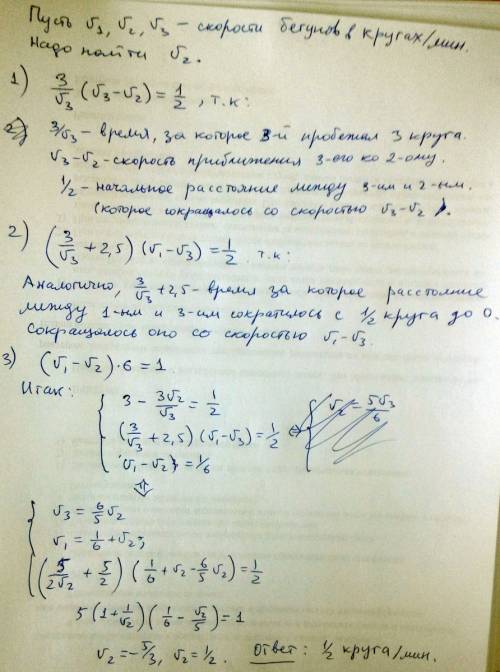 Пусть v₁, v₂, v₃ – скорости бегунов в кругах/мин.
Надо найти v₂.
1) 3/v₃ (v₃-v₂) = 1/2 , т.к:
3/v₃ – время, за которое 3-й пробежал 3 круга.
v₃-v₂ - скорость приближения 3-его ко 2-ому.
1/2 - начальное расстояние между 3-им и 2-ым.
(которое сокращалось со скоростью v₃-v₂).
2) (3/v₃ + 2,5) (v₁-v₃) = 1/2 т.к:
Аналогично, 3/v₃ + 2,5 - время за которое расстояние
между 1-ым и 3-им сократилось с 1/2 круга до 0.
Сокращалось оно со скоростью v₁-v₃.
3) (v₁-v₂)·6 = 1
Итак:
{ 3 - 3v₂/v₃ = 1/2
(3/v₃ + 2,5) (v₁-v₃) = 1/2 ⇔
v₁-v₂ = 1/6
⇕
{ v₃ = 6/5 v₂
v₁ = 1/6 + v₂;
(5/2v₂ + 5/2) (1/6 + v₂ - 6/5 v₂) = 1/2
5 (1 + 1/v₂) (1/6 - v₂/5) = 1
v₂ = -5/3, v₂ = 1/2. Ответ: 1/2 круга/мин.